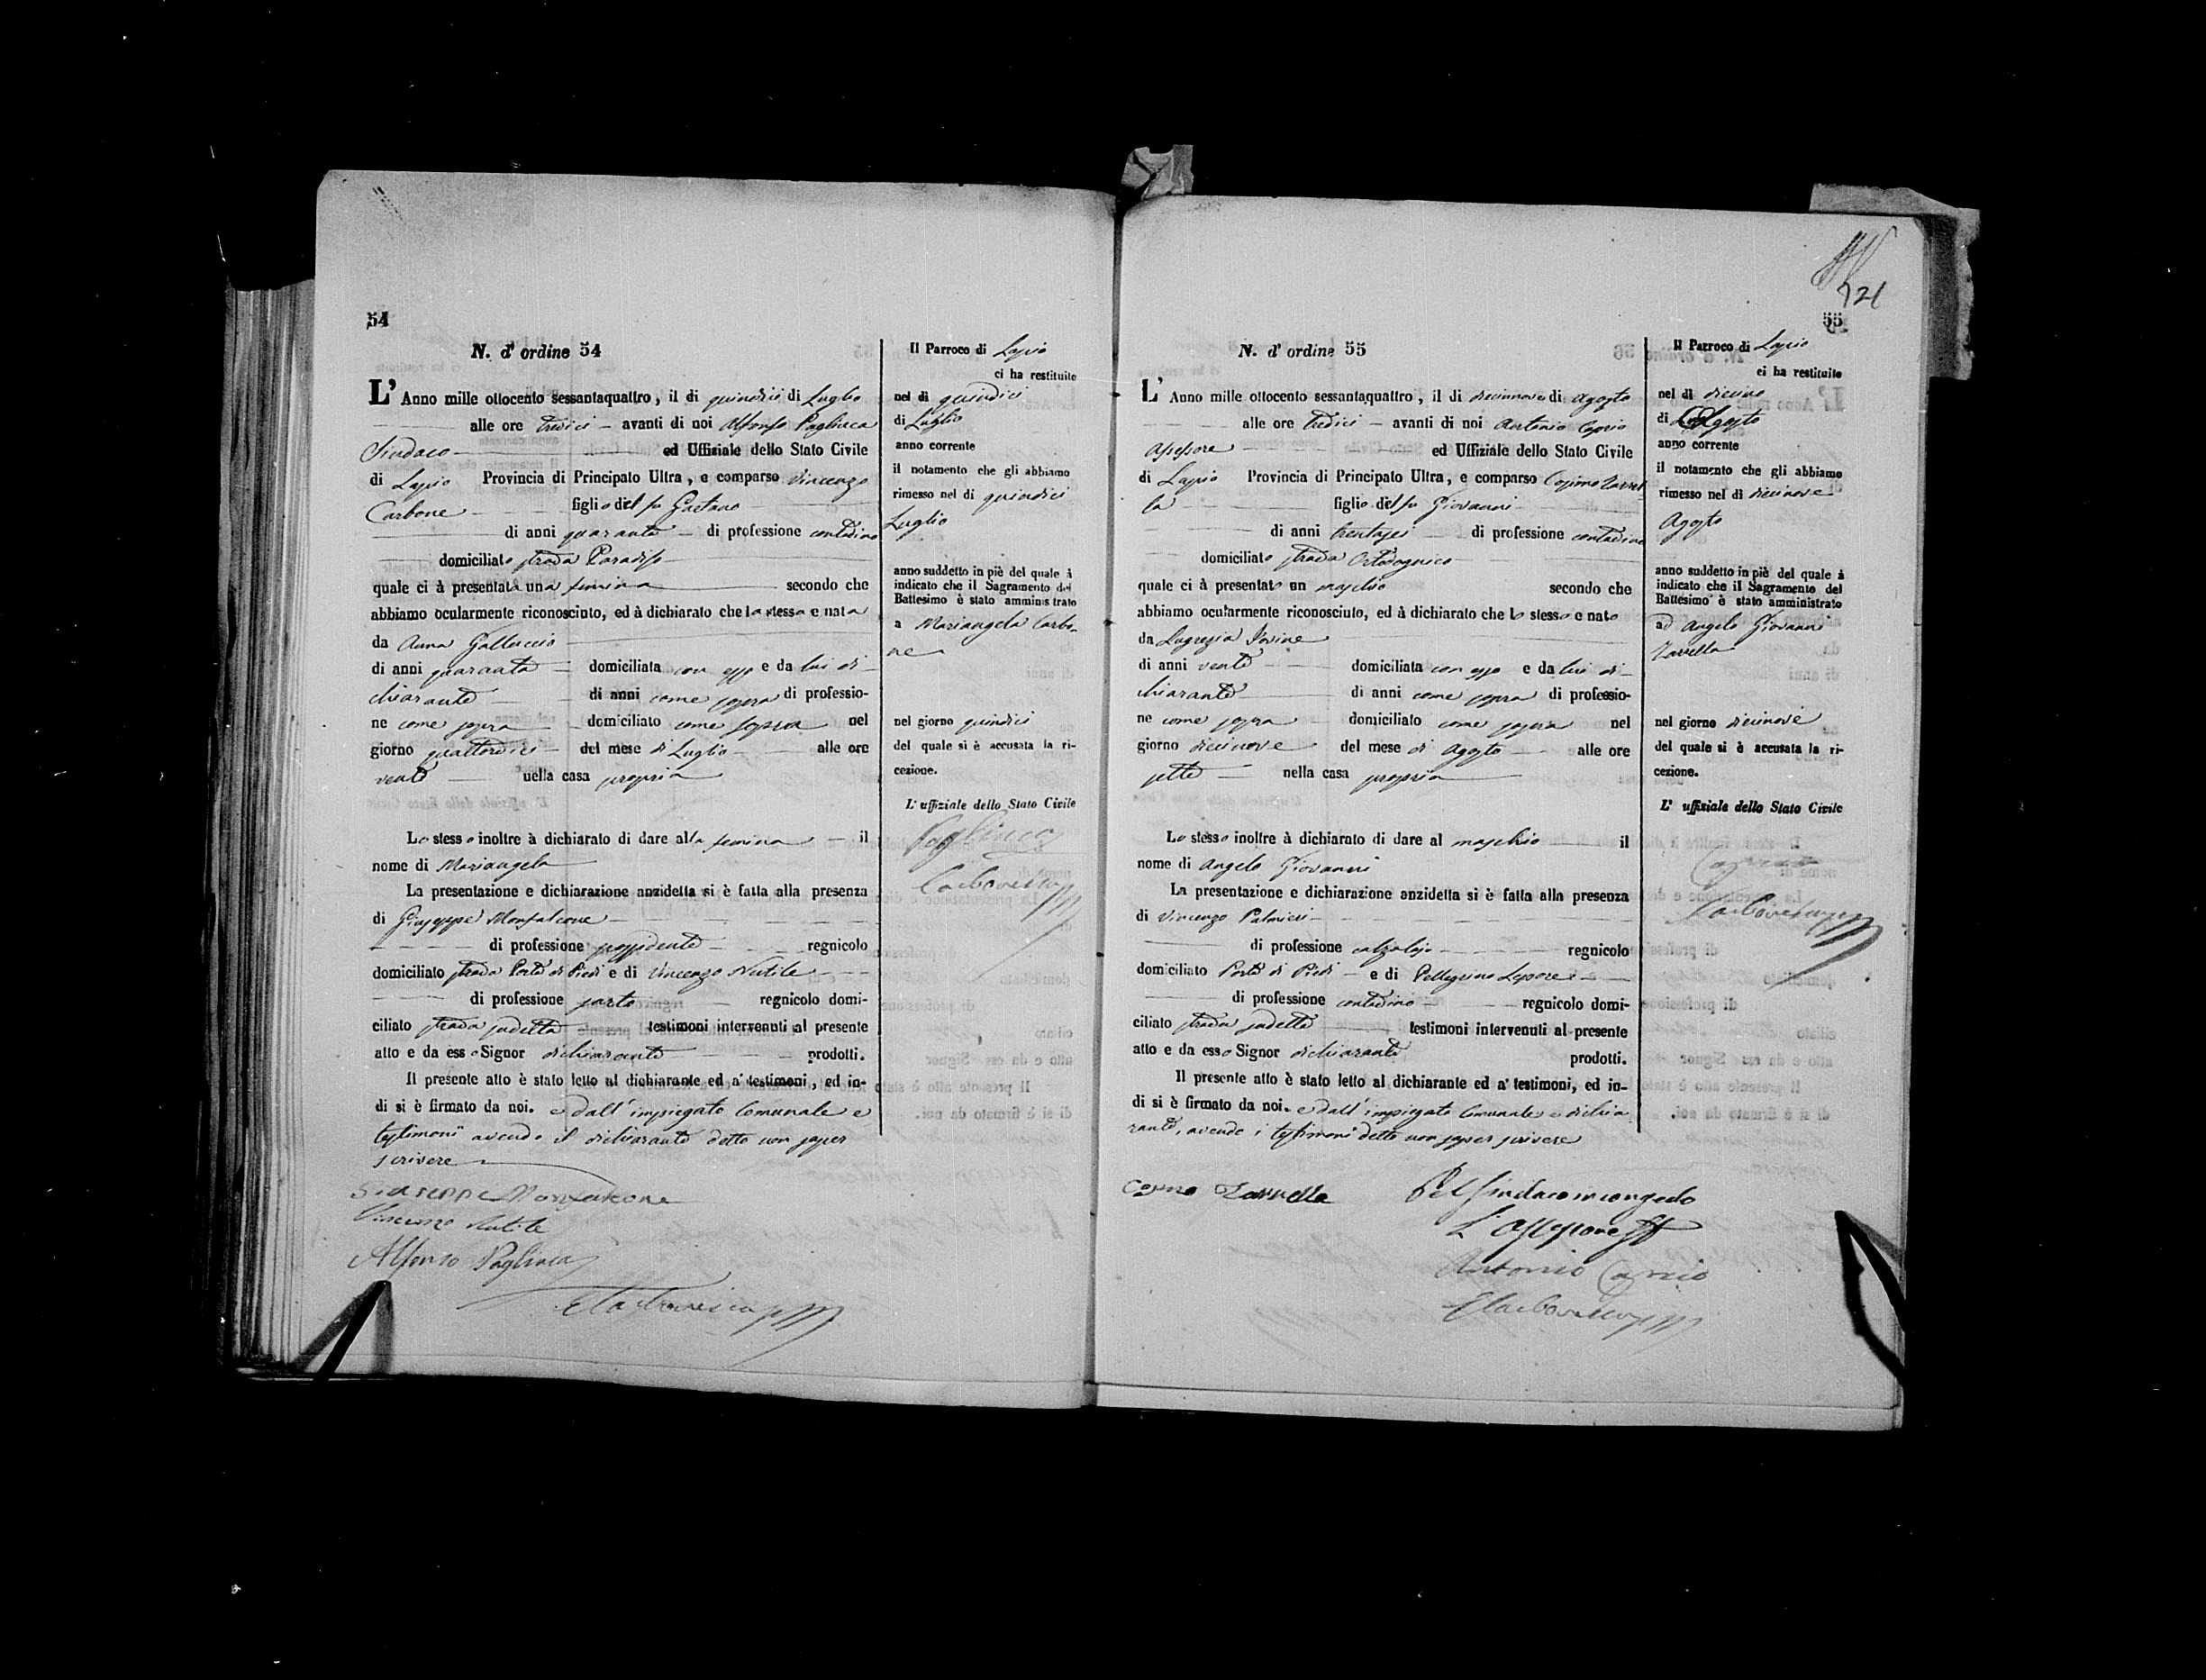 54
N. d' ordine 54
L' Anno mille ottocento sessantaquattro, il di quindici di Luglio
alle ore tredici avanti di noi Alfonso Pagliuca
Sindaco ed Uffiziale dello Stato Civile
di Lapio Provincia di Principato Ultra, e comparso Vincenzo
Carbone figlio del fu Gaetano
di anni quaranta di professione contadino
domiciliato strada Paradiso
quale ci à presentata una femina secondo che
abbiamo ocularmente riconosciuto, ed à dichiarato che la stessa e nata
da Anna Galluccio
di anni quaranta domiciliata con esso e da lui di-
chiarante di anni come sopra di professio-
ne come sopra domiciliato come sopra nel
giorno quattordici del mese di Luglio alle ore
venti nella casa propria
Lo stesso inoltre à dichiarato di dare alla femina il
nome di Mariangela
La presentazione e dichiarazione anzidetta si è fatta alla presenza
di Giuseppe Monfalcone
di professione possidente regnicolo
domiciliato strada Porta di Piedi e di Vincenzo Nutile
di professione sarto regnicolo domi-
ciliato strada sudetta testimoni intervenuti al presente
atto e da esso Signor dichiarante prodotti.
Il presente atto è stato letto al dichiarante ed a' testimoni, ed in-
di si è firmato da noi. e dall'impiegato Comunale e
testimonii avendo il dichiarante detto non saper
scrivere
Giuseppe Monfalcone
Vincenzo Nutile
Alfonso Pagliuca
Il Parroco di Lapio
ci ha restituite
nel di quindici
di Luglio
anno corrente
il notamento che gli abbiamo
rimesso nel di quindici
Luglio
anno suddetto in piè del quale à
indicato che il Sagramento del
Battesimo è stato amministrato
a Mariangela Carbo-
ne
nel giorno quindici
del quale si è accusata la ri-
cezione.
L' uffiziale dello Stato Civile
Pagliuca
21
55
N. d' ordine 55
L' Anno mille ottocento sessantaquattro, il di diecinnove di Agosto
alle ore tredici avanti di noi Antonio Caprio
Assessore ed Uffiziale dello Stato Civile
di Lapio Provincia di Principato Ultra, e comparso Cosimo Zarrel
la figlio del fu Giovanni
di anni trentasei di professione contadino
domiciliato strada
quale ci à presentato un maschio secondo che
abbiamo ocularmente riconosciuto, ed à dichiarato che lo stesso e nato
da Lugrezia Iovine
di anni venti domiciliata con esso e da lui di-
chiarante di anni come sopra di professio-
ne come sopra domiciliato come sopra nel
giorno diecinove del mese di Agosto alle ore
sette nella casa propria
Lo stesso inoltre à dichiarato di dare al maschio il
nome di Angelo Giovanni
La presentazione e dichiarazione anzidetta si è fatta alla presenza
di Vincenzo Palmieri
di professione calzolajo regnicolo
domiciliato Porta di Piedi e di Pellegrino Lepore
di professione contadino regnicolo domi-
ciliato strada sudetta testimoni intervenuti al presente
atto e da esso Signor dichiarante prodotti.
Il presente atto è stato letto al dichiarante ed a' testimoni, ed in-
di si è firmato da noi. e dall'impiegato Comunale e dichia
rante, avendo i testimonii detto non saper scrivere
Cosimo Zarrella
Pel Sindaco in congedo
L'Assessore ff
Antonio Caprio
Il Parroco di Lapio
ci ha restituito
nel di diecino
di Agosto
anno corrente
il notamento che gli abbiamo
rimesso nel di diecinove
Agosto
anno suddetto in piè del quale à
indicato che il Sagramento del
Battesimo è stato amministrato
ad Angelo Giovanni
Zarrella
nel giorno diecinove
del quale si è accusata la ri-
cezione.
L' uffiziale dello Stato Civile
Caprio